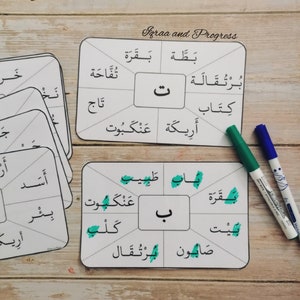 Iqraa and Progress
بَطَّة بَقَرَة
بُرْتُقَالَة تُفَّاحَة
ت
كِتَاب تَاج
أَرِيكَة عَنْكَبُوت
بَاب طَبِيب
بَقَرَة عَنْكَبُوت
ب
بَيْت كَلْب
صَابُون بُرْتُقَال
أَسَد
بِئْر